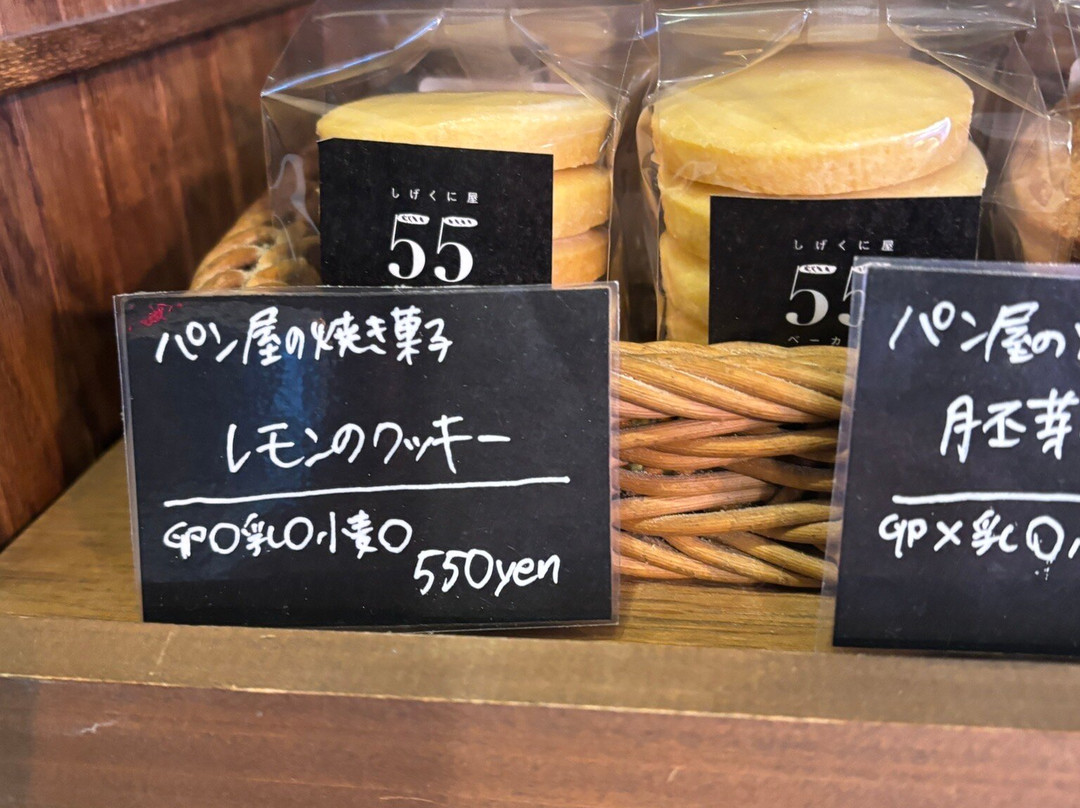 しげくに屋
55
しげくに屋
55
ベーカ
パン屋の焼き菓子
レモンのクッキー
卵〇乳〇小麦〇
550yen
パン屋の
胚芽
卵×乳〇